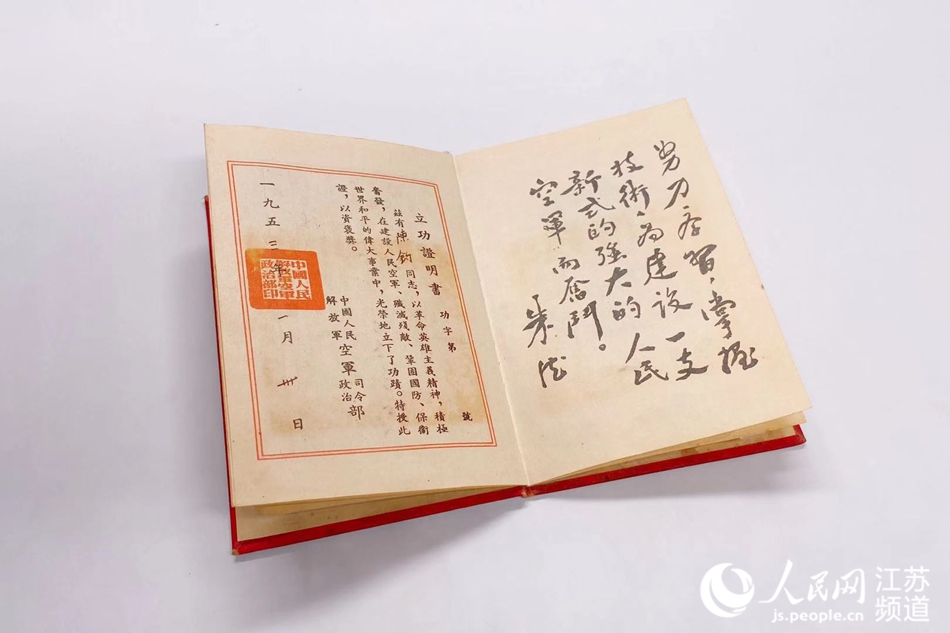 努力学習,掌握
技術,为建设一支
新式的强大的人民
空軍而奮鬥。
朱德
立功證明書 功字第 號
茲有陳鈞同志,以革命英雄主義精神,積極
奮發,在建設人民空軍、殲滅殘敵、鞏固國防、保衛
世界和平的偉大事業中,光榮地立下了功蹟。特授此
證,以資褒獎。
中國人民
解放軍
空軍
司令
政治
部
一九五三年一月卅日
中國人民
解放軍空軍
政治部印
人民网
js.people.cn
江苏
频道